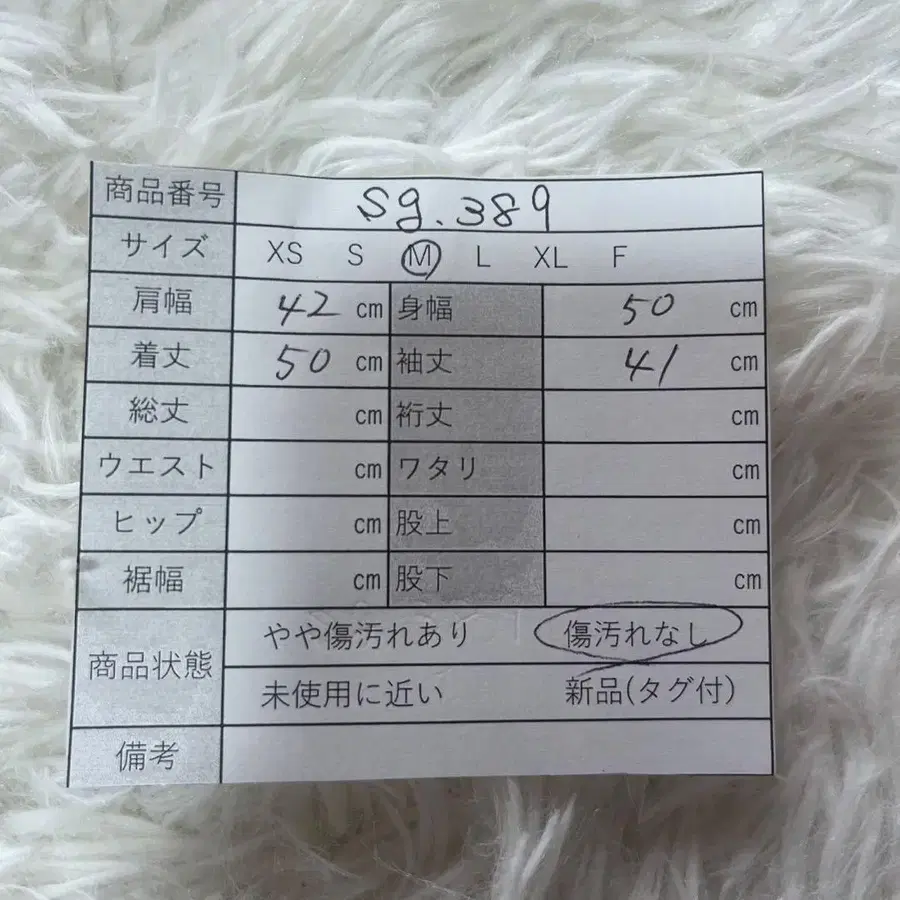 商品番号 sg.389
サイズ XS S M L XL F
肩幅 42 cm 身幅 50 cm
着丈 50 cm 袖丈 41 cm
総丈 cm 裄丈 cm
ウエスト cm ワタリ cm
ヒップ cm 股上 cm
裾幅 cm 股下 cm
商品状態 やや傷汚れあり 傷汚れなし
未使用に近い 新品(タグ付)
備考